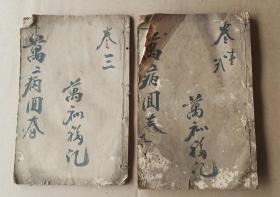 卷三
萬病回春
萬和福記
卷
萬病回春
萬和福記